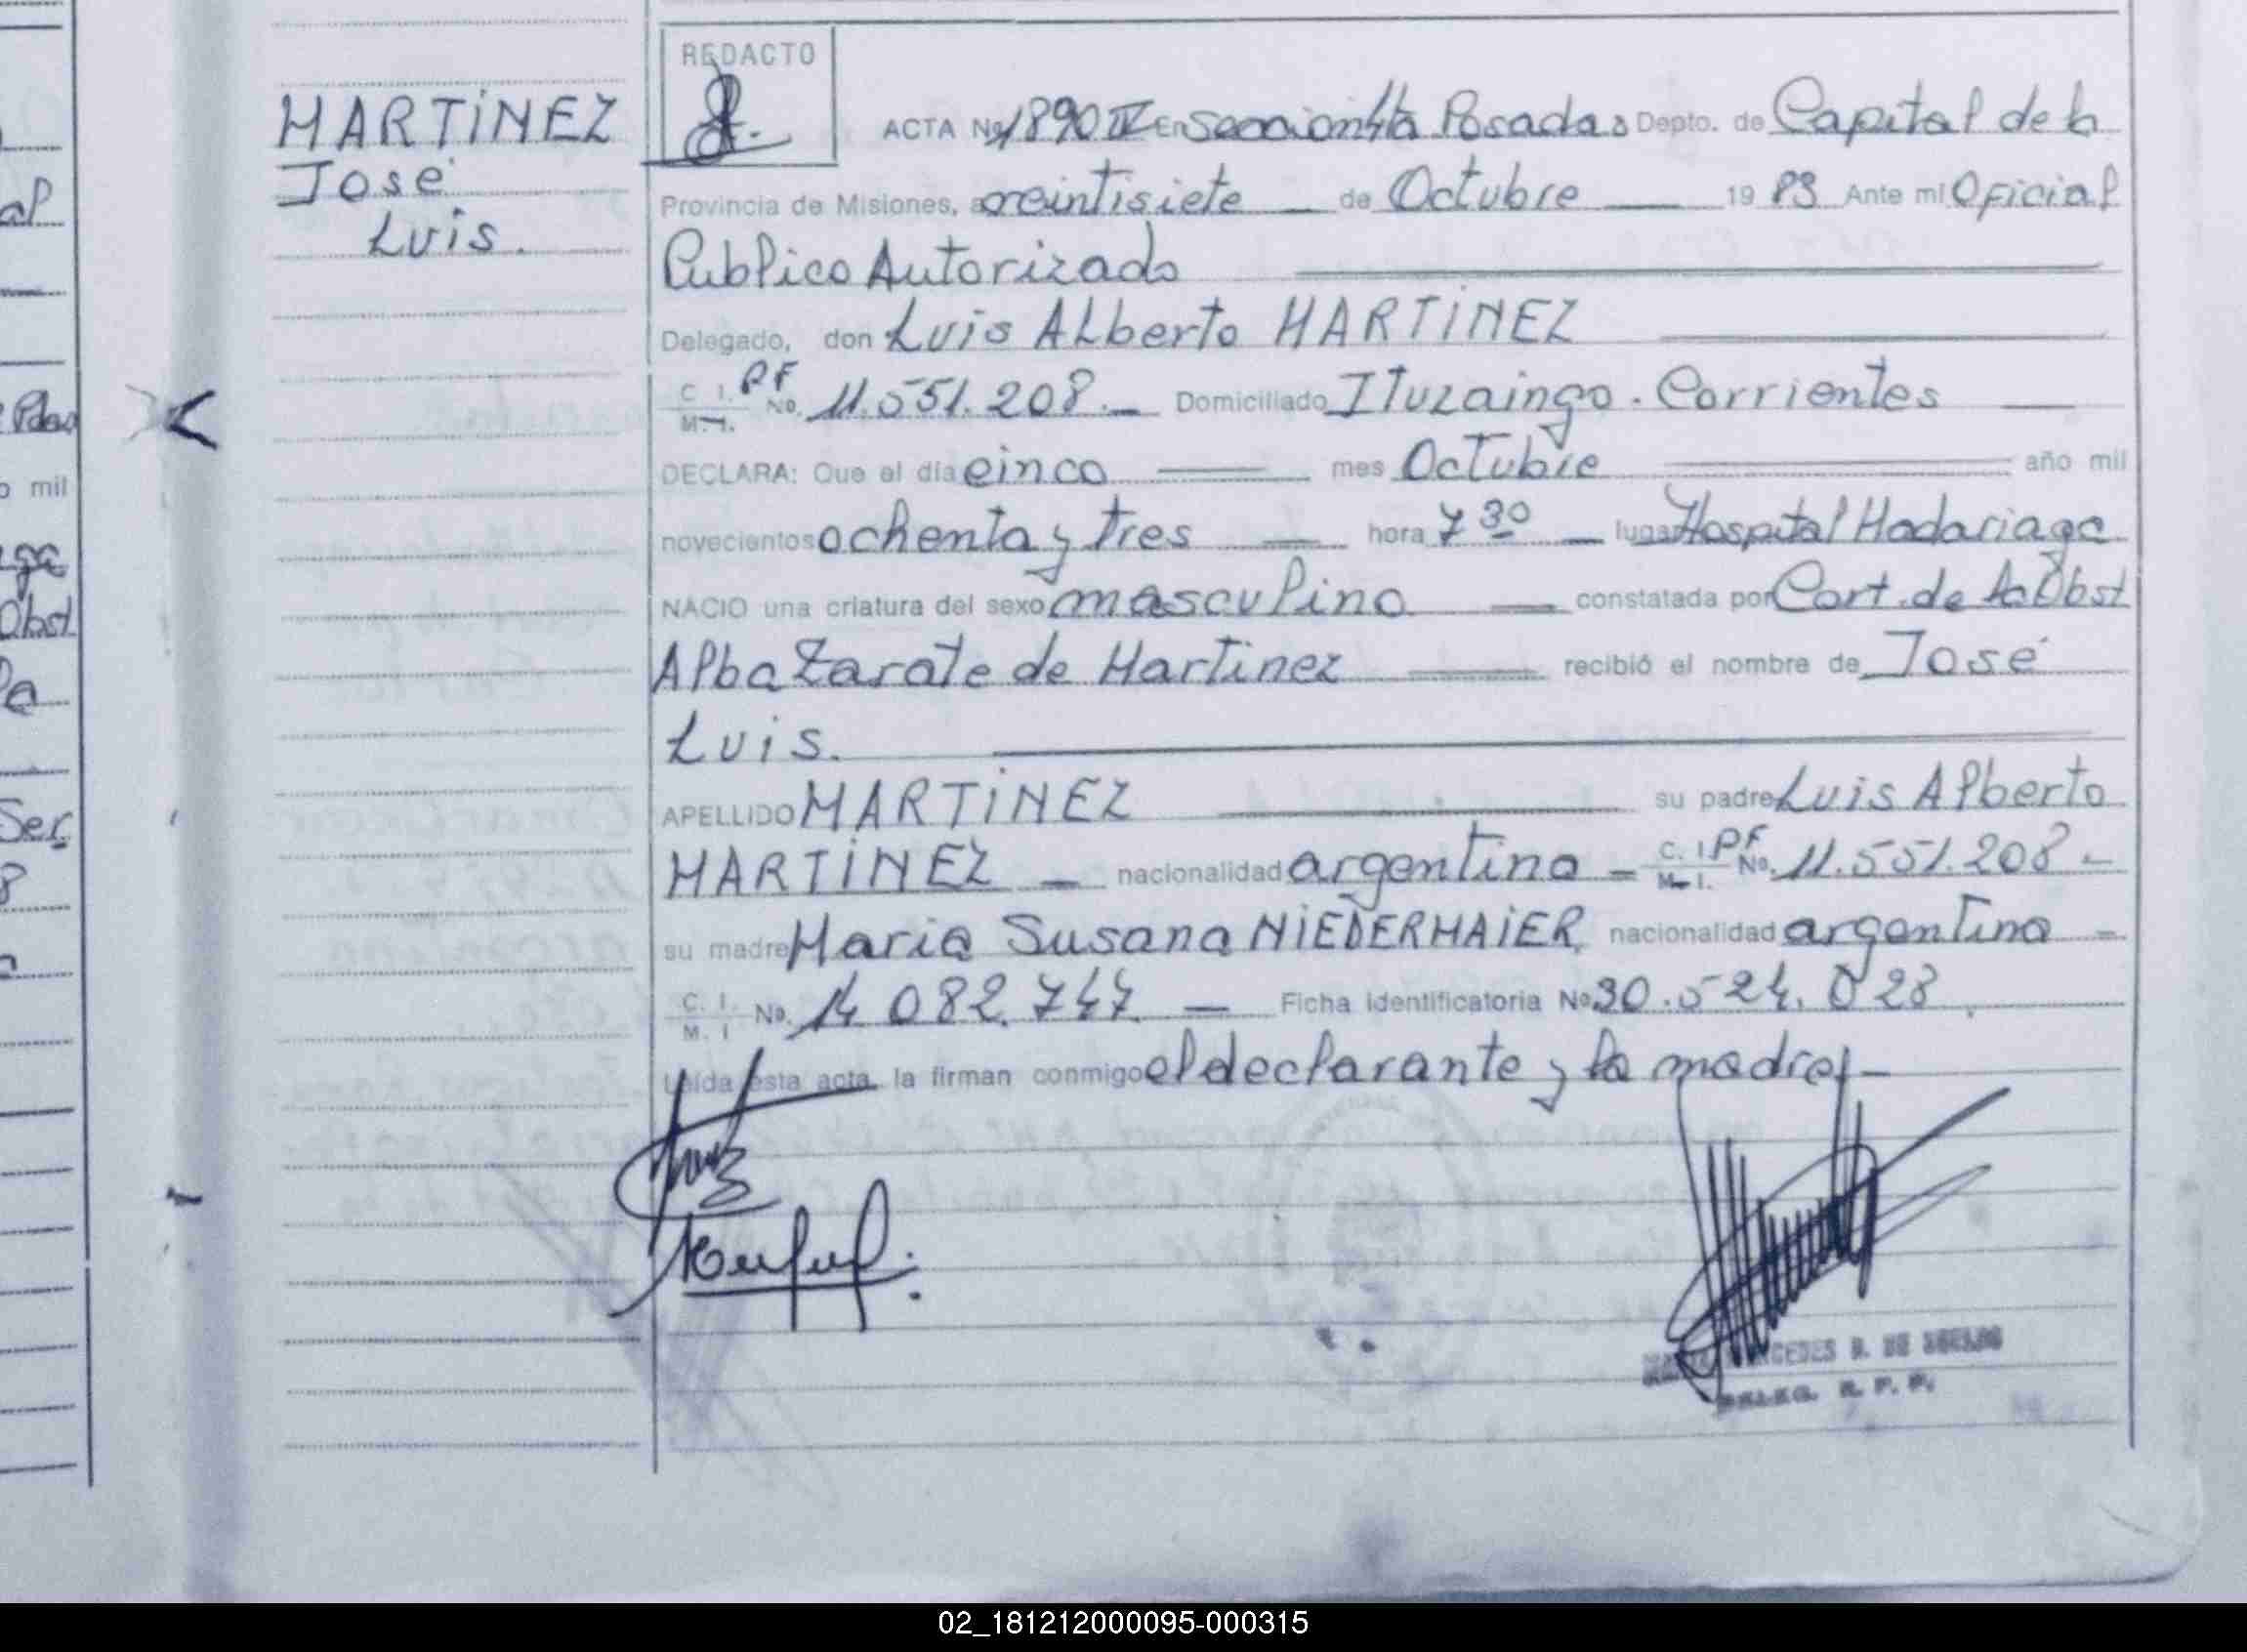 MARTINEZ
José
Luis.
REDACTO
ACTA No 1890 IV En sección 4ta Posadas Depto. de Capital de la
Provincia de Misiones, a veintisiete de Octubre 19 83 Ante mi Oficial
Publico Autorizado
Delegado, don Luis ALberto MARTINEZ
C. I. PF No. 11.551.208.- Domiciliado Ituzaingo. Corrientes
M. I.
DECLARA: Que el día cinco mes Octubre año mil
novecientos ochenta y tres hora 7 30 lugar Hospital Madariaga
NACIO una criatura del sexo masculino constatada por Cert. de la Obst
Alba Zarate de Martinez recibió el nombre de José
Luis.
APELLIDO MARTINEZ su padre Luis Alberto
MARTINEZ nacionalidad argentina C. I. PF No. 11.551.208 -
M. I.
su madre Maria Susana NIEDERMAIER, nacionalidad argentina -
C. I. No. 14 082.747 - Ficha identificatoria No 30.524.028
M. I
Leída esta acta la firman conmigo el declarante y la madre -
MERCEDES DE
DELEG. R. P. P.
Pdas
o mil
Obst
Ser
02_181212000095-000315